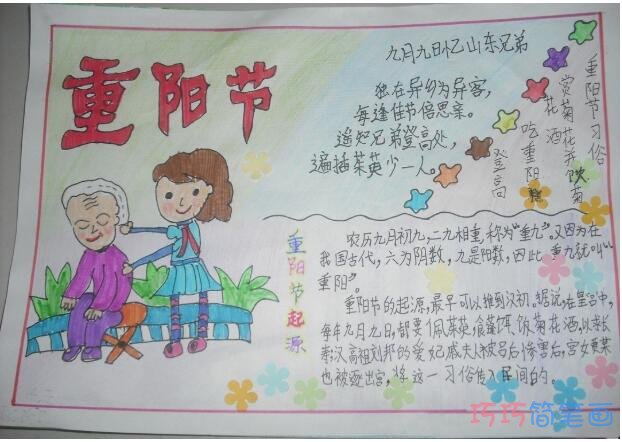 重阳节
九月九日忆山东兄弟
独在异乡为异客，
每逢佳节倍思亲。
遥知兄弟登高处，
遍插茱萸少一人。
重阳节习俗
赏菊花并饮菊
花酒
吃重阳糕
登高
重阳节起源
农历九月初九，二九相重，称为“重九”。又因为在
我国古代，六为阴数，九是阳数，因此，重九就叫“
重阳”。
重阳节的起源，最早可以推到汉初。据说，在皇宫中，
每年九月九日，都要佩茱萸，食蓬饵，饮菊花酒，以求长
汉高祖刘邦的爱妃戚夫人被吕后惨害后，宫女贾某
也被逐出宫，将这一习俗传入民间的。
巧巧简笔画